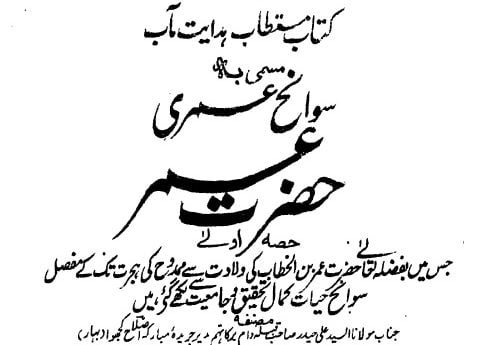 کتاب مستطاب ہدایت مآب
مسمی بہ
سوانح عمری
حضرت عمر
حصہ اولے
جس میں بفضلہ تعالیٰ حضرت عمر بن الخطاب کی ولادت سے ممدوح کی ہجرت تک کے مفصل
سوانح حیات کمال تحقیق و جامعیت سے لکھے گئے ہیں
مصنفہ
جناب مولانا السید علی حیدر صاحب قبلہ دام برکاتہم مدیر جریدۂ مبارکہ اصلاح کجھوا (بہار)